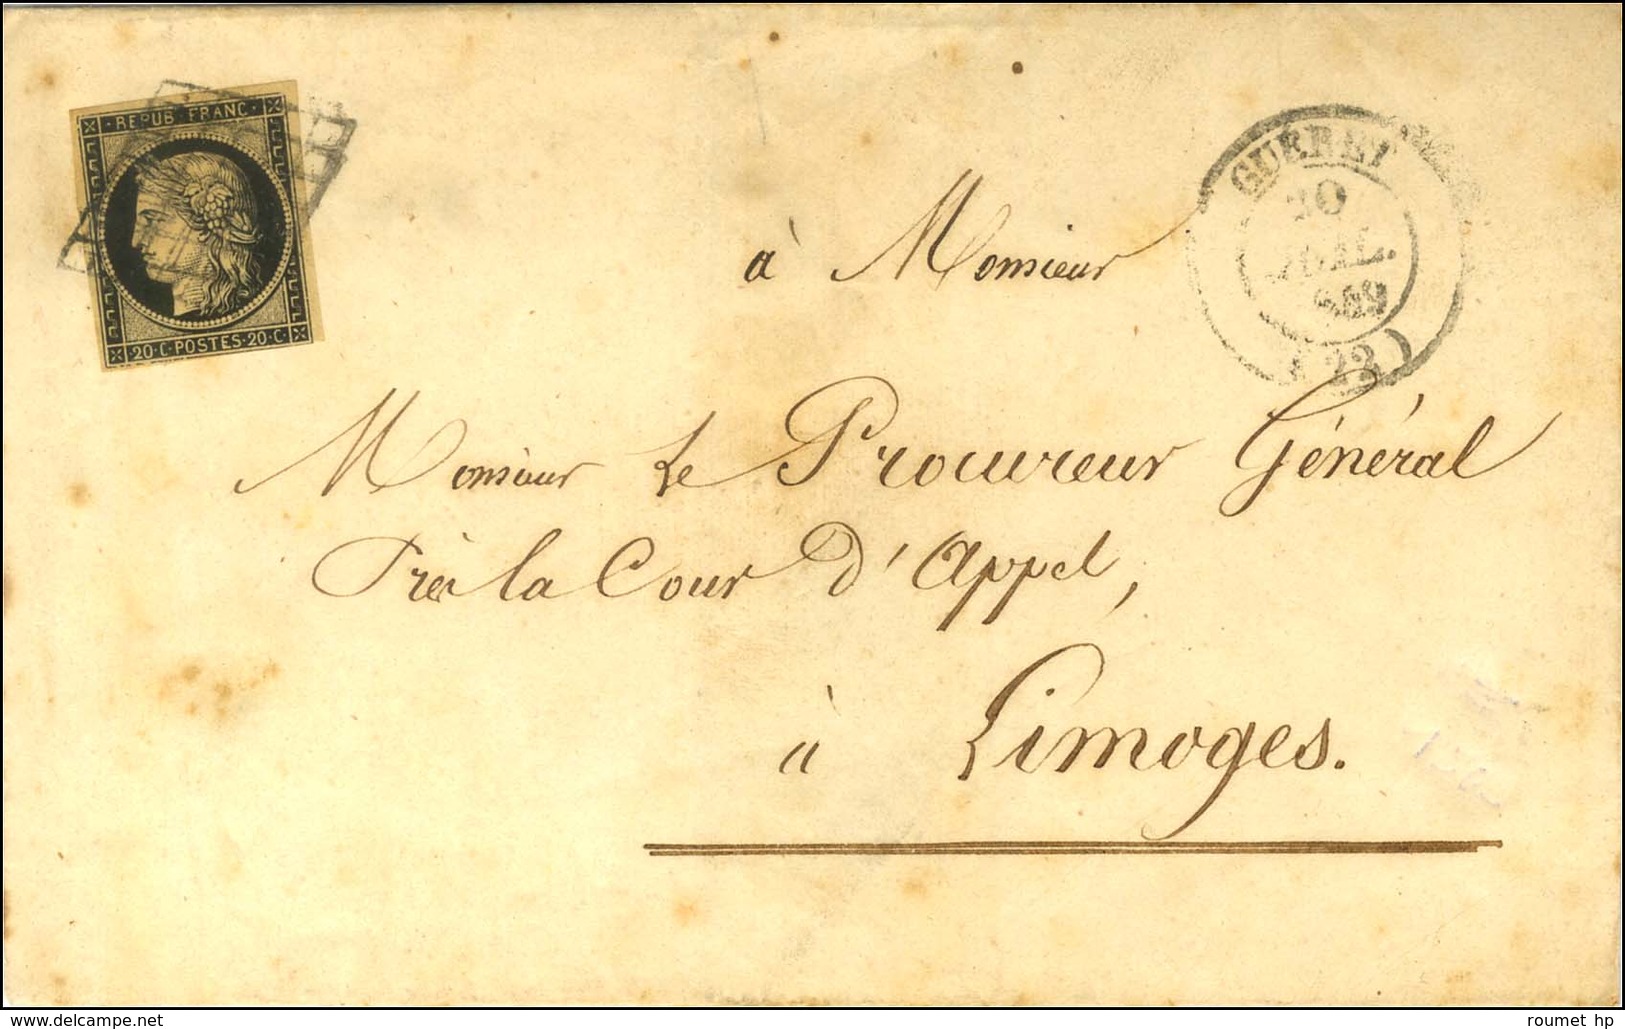 · REPUB · FRANC ·
· 20 · C · POSTES · 20 · C ·
GUERET
1849
( 22 )
à Monsieur
Monsieur le Procureur Général
Près la Cour d'Appel,
à Limoges.
www.delcampe.net
roumet hp